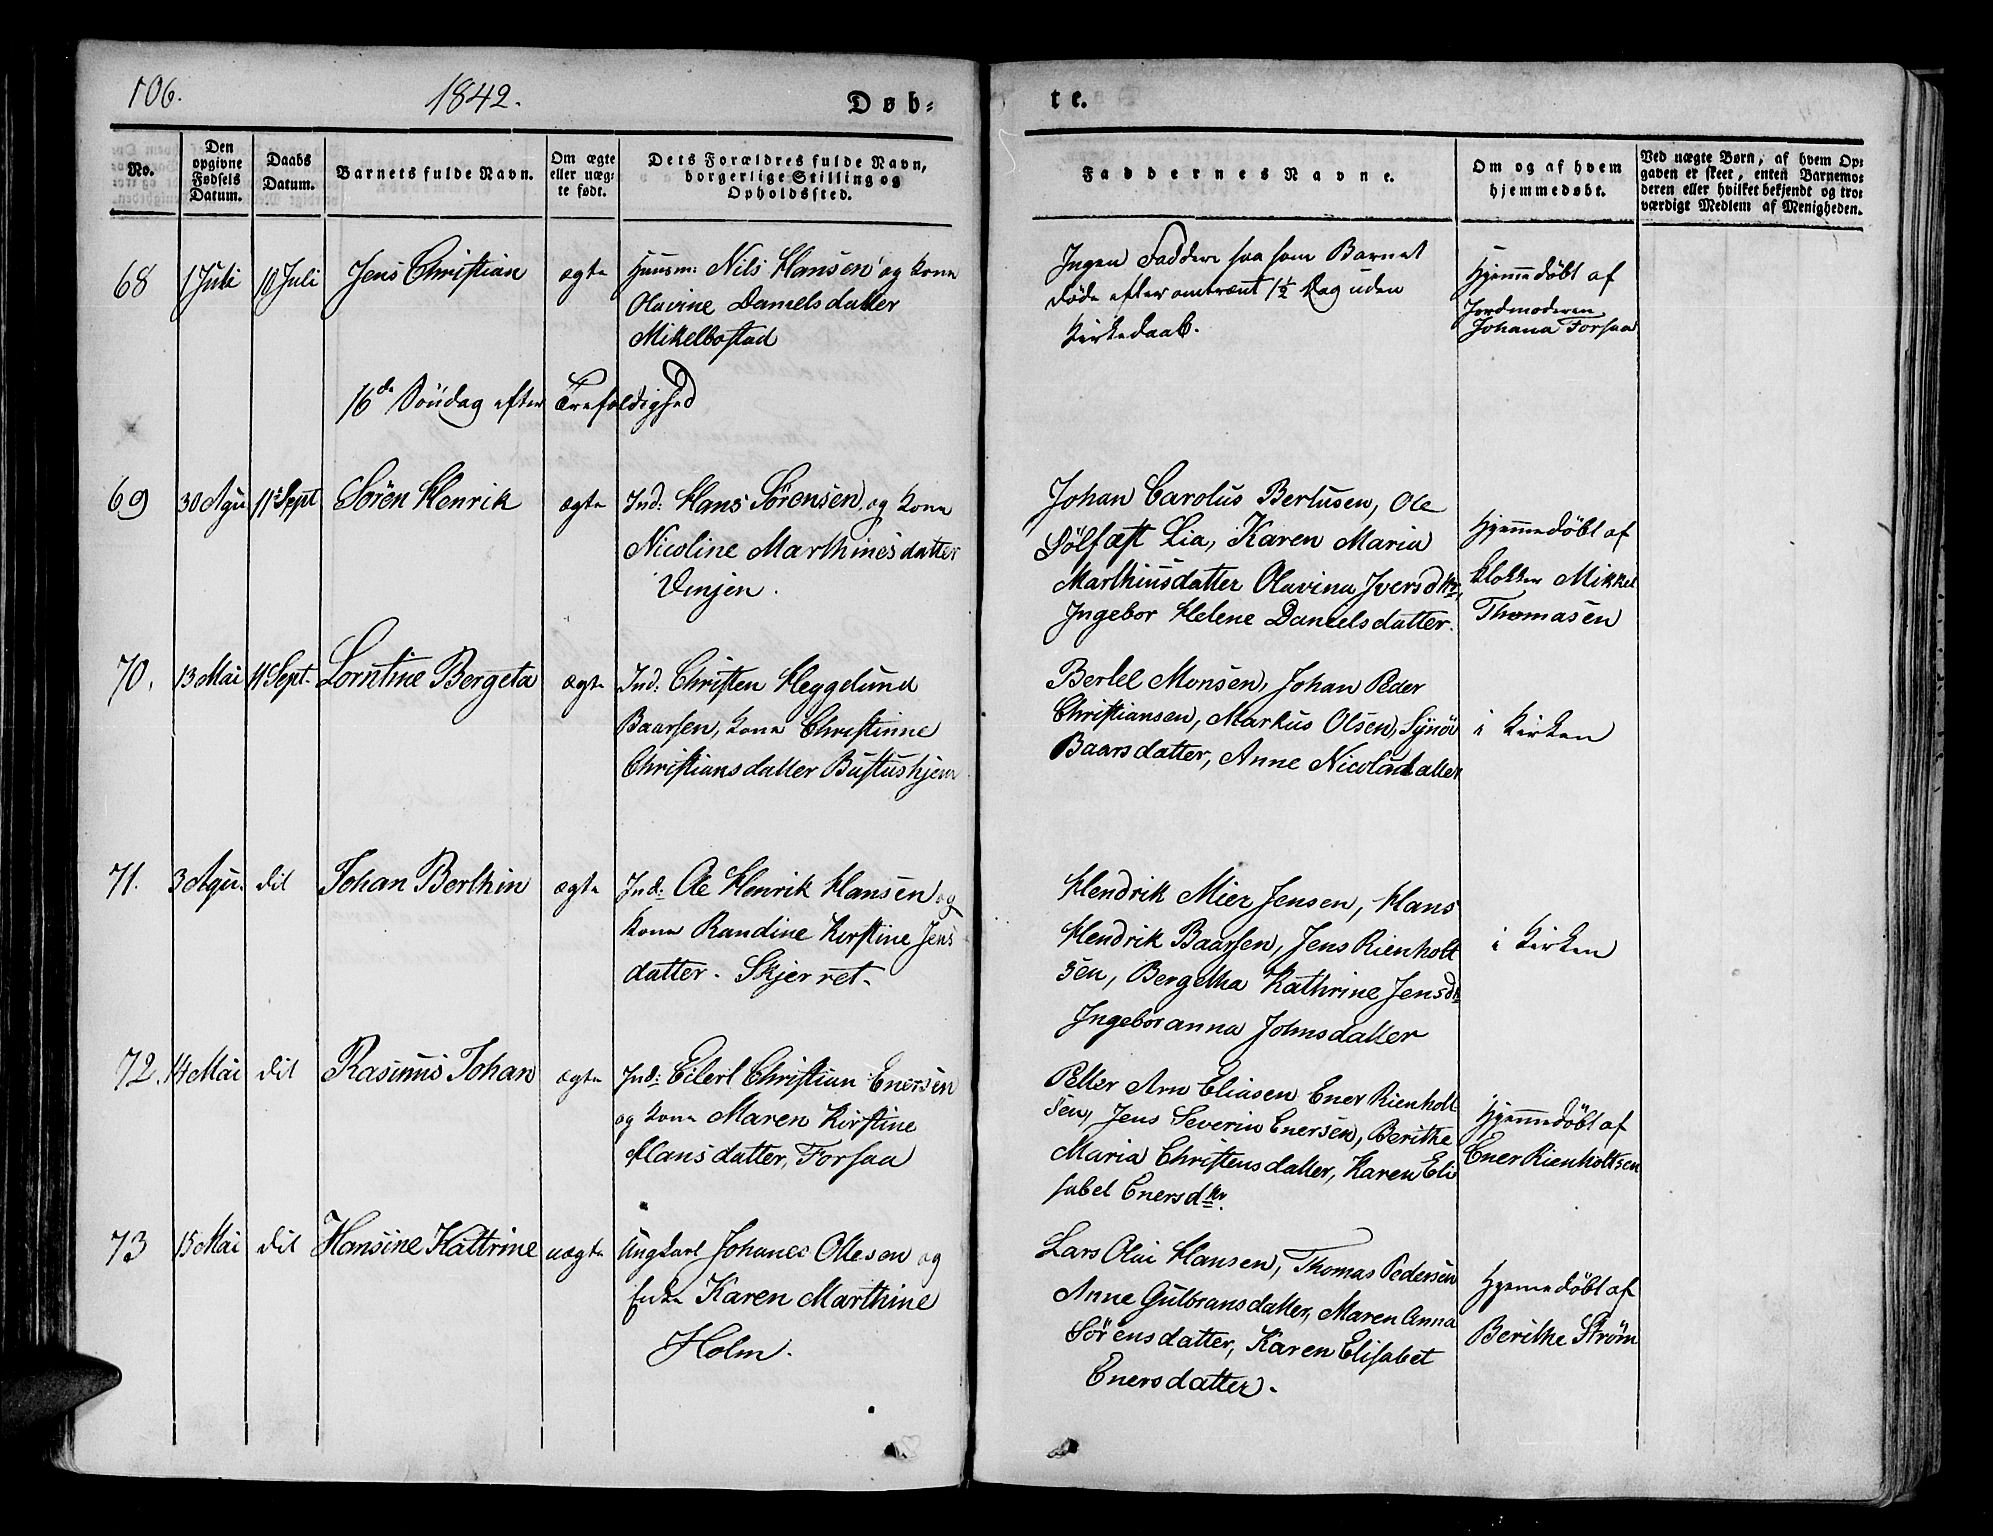 106.
1842.
Døb-
te.
No.
Den opgivne Fødsels Datum.
Daabs Datum.
Barnets fulde Navn.
Om ægte eller uægte født.
Dets Forældres fulde Navn, borgerlige Stilling og Opholdssted.
Faddernes Navne.
Om og af hvem hjemmedøbt.
Ved uægte Børn, af hvem Opgaven er skeet, enten Barnemoderen eller hvilket bekjendt og troværdigt Medlem af Menigheden.
68 1 Juli 10 Juli Jens Christian ægte Huusm: Nils Hansen og kone
Olavine Danielsdatter
Mikelbostad
Ingen Faddere saa som Barnet
døde efter omtrent 1½ Dag uden
Kirkedaab.
Hjemmedøbt af
Jordmoderen
Johana Forsaa
16de Søndag efter Trefoldighed
69 30 Agu 11te Sept Sören Henrik ægte Ind: Hans Sörensen og kone
Nicoline Marthinesdatter
Vinjen.
Johan Carolus Bertusen, Ole
Sölfæst Lia, Karen Maria
Marthinsdatter Olavina Iversdtr,
Ingebor Helene Danielsdatter.
Hjemmedøbt af
klokker Mikkel
Thomasen
70. 13 Mai 11 Sept. Lorntine Bergeta ægte Ind: Christen Heggelund
Baarsen, kone Christinne
Christiansdatter Bustushjem
Bertel Monsen, Johan Peder
Christiansen, Markus Olsen, Synöv
Baarsdatter, Anne Nicoladatter
i kirken
71. 3 Agu. dit Johan Berthin ægte Ind: Ole Henrik Hansen og
kone Randine Kirstine Jens
datter. Skjerret.
Hendrik Mier Jensen, Hans
Hendrik Baarsen, Jens Rienholt
sen, Bergetha Kathrine Jensdtr
Ingeboranna Johnsdatter
i kirken
72. 14 Mai dit Rasmus Johan ægte Ind: Eilert Christian Enersen
og kone Maren Kirstine
Hansdatter, Forsaa
Petter Arn Eliasen Ener Rienholt
sen, Jens Severin Enersen, Berithe
Maria Christensdatter, Karen Eli
sabet Enersdtr.
Hjemmedøbt af
Ener Rienholtsen
73 15 Mai dit Hansine Kattrine uægte Ungkarl Johanes Ollesen og
Enke Karen Marthine
Holm.
Lars Olai Hansen, Thomas Pedersen
Anne Gulbransdatter, Maren Anna
Sörensdatter, Karen Elisabet
Enersdatter.
Hjemmedøbt af
Berithe Ström